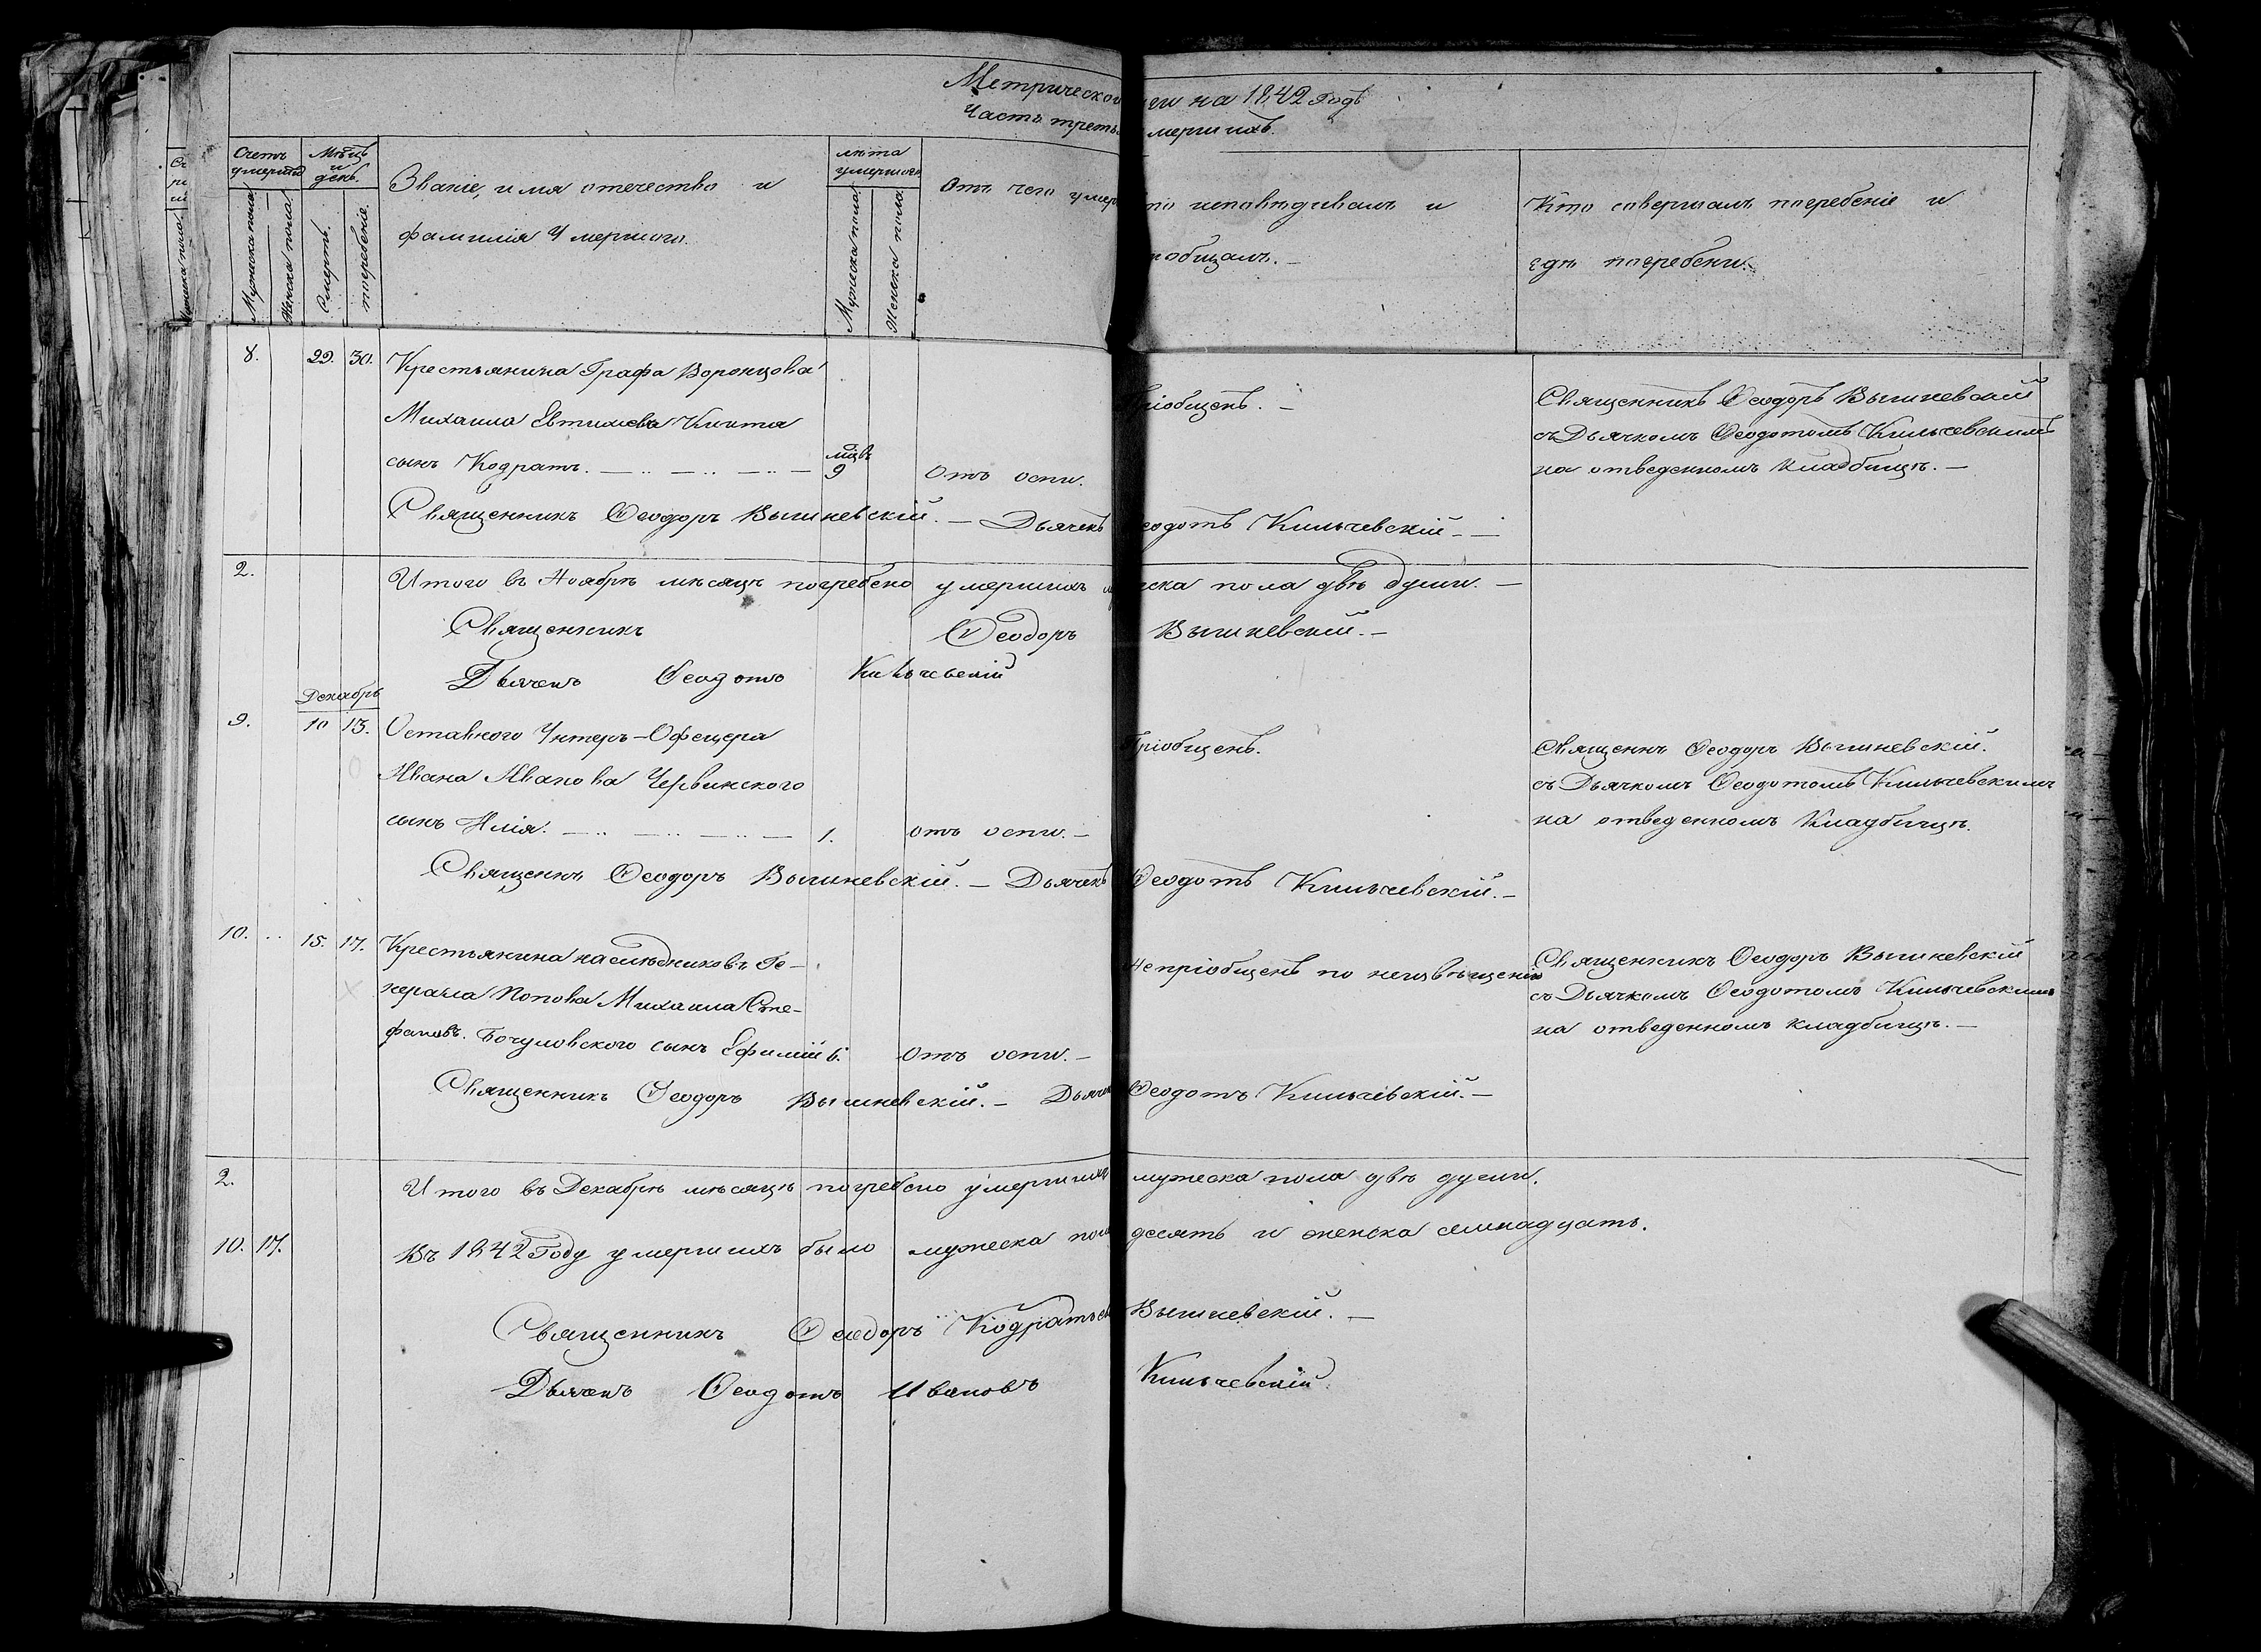 Метрической ... ги на 1842 Годъ
Часть третья ... мершихъ.
Счетъ умершихъ
Мужеска пола
Женска пола
Мѣсяцъ и день.
Смерть.
погребеніе.
Званіе, имя отечество и
фамилія Умершаго.
лѣта умершаго
Мужеска пола
Женска пола
Отъ чего умер
то исповѣдывалъ и
общалъ.
Кто совершалъ погребеніе и
гдѣ погребены.
8. 29. 30. Крестьянина Графа Воронцова
Михаила Евтихіева Кикта
сынъ Кодратъ. мцъ 9 Отъ оспы.
Пріобщенъ.
Священникъ Ѳеодоръ Вышневскій
съ Дьячкомъ Ѳеодотомъ Кильчевскимъ
на отведенномъ кладбищѣ.
Священникъ Ѳеодоръ Вышневскій. — Дьячекъ Ѳеодотъ Кильчевскій.
2. Итого въ Ноябрѣ мѣсяцѣ погребено умершихъ мужеска пола двѣ души.
Священникъ Ѳеодоръ Вышневскій.
Дьячекъ Ѳеодотъ Кильчевскій
Декабрь
9. 10 13. Оставного Унтеръ-Офецера
Ивана Иванова Червинского
сынъ Илія. 1. отъ оспы.
Пріобщенъ.
Священикъ Ѳеодоръ Вышневскій.
съ Дьячкомъ Ѳеодотомъ Кильчевскимъ
на отведенномъ Кладбищѣ.
Священикъ Ѳеодоръ Вышневскій. — Дьячекъ Ѳеодотъ Кильчевскій.
10. 15. 17. Крестьянина наслѣдниковъ Ге-
нерала Попова Михаила Сте-
фанов. Бочуловского сынъ Ефимій 6. отъ оспы.
Непріобщенъ по неизвѣщенію
Священникъ Ѳеодоръ Вышневскій
съ Дьячкомъ Ѳеодотомъ Кильчевскимъ
на отведенномъ кладбищѣ.
Священникъ Ѳеодоръ Вышневскій. — Дьячекъ Ѳеодотъ Кильчевскій.
2. Итого въ Декабрѣ мѣсяцѣ погребено умершихъ мужеска пола двѣ души.
10. 17. Въ 1842 Году умершихъ было мужеска пола десять и женска семнадцать.
Священникъ Ѳеодоръ Кодратьев Вышневскій.
Дьячекъ Ѳеодотъ Ивановъ Кильчевскій